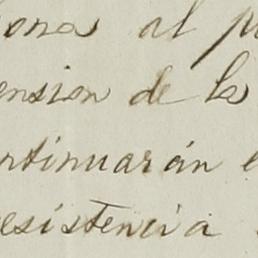 ona al p
ension de la
ntinuarán e
esistencia